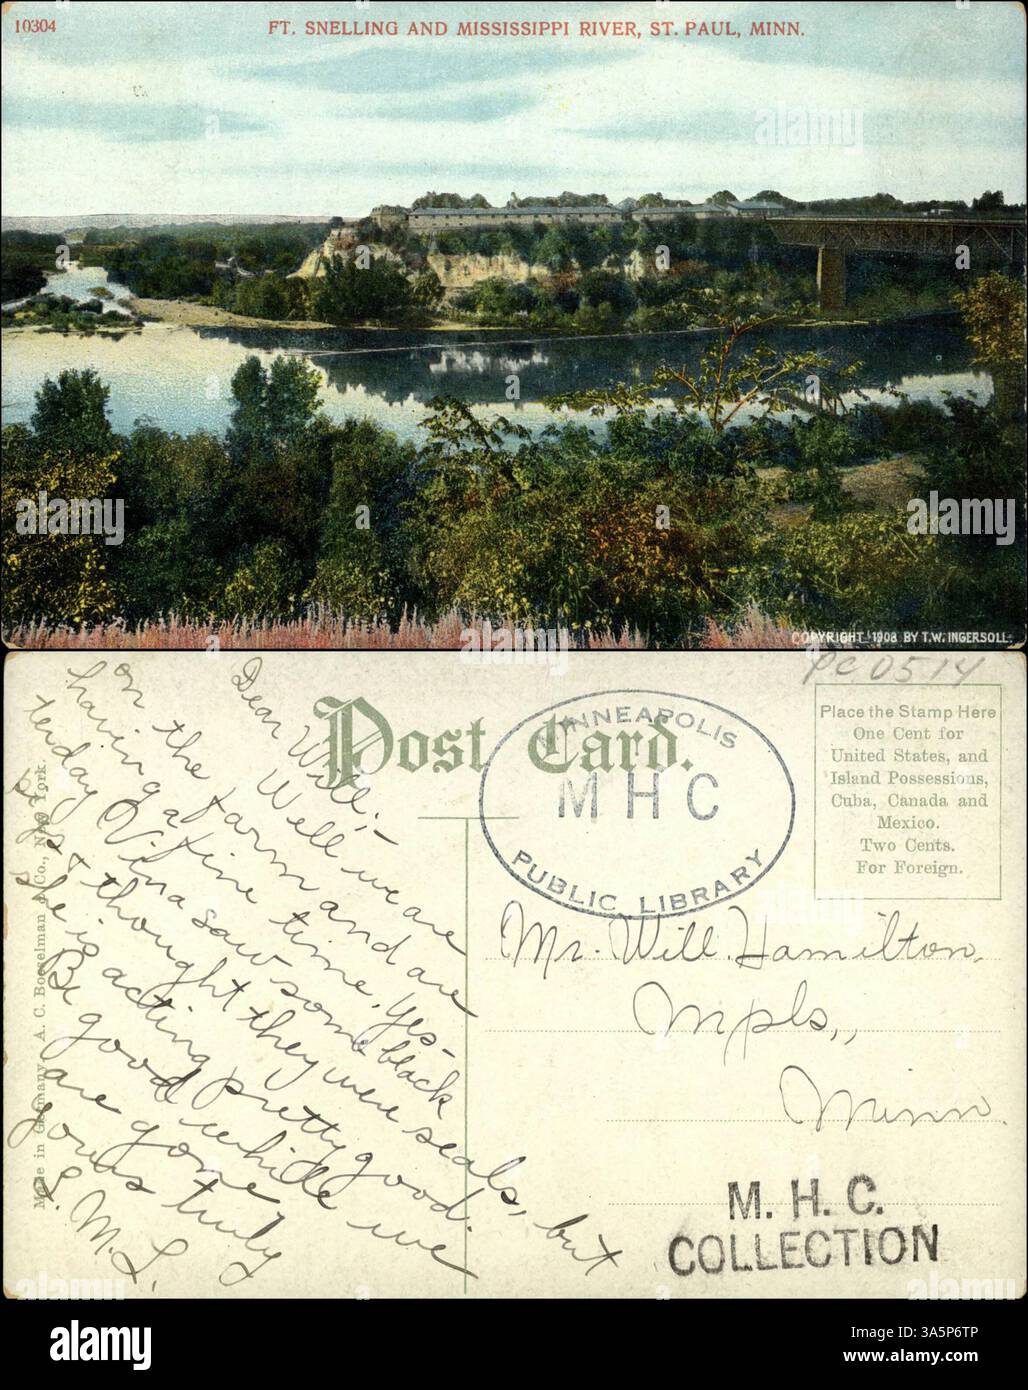 10304
FT. SNELLING AND MISSISSIPPI RIVER, ST. PAUL, MINN.
alamy
alamy
COPYRIGHT 1908 BY T.W. INGERSOLL.
PC 0514
Post Card.
MINNEAPOLIS
M H C
PUBLIC LIBRARY
Place the Stamp Here
One Cent for
United States, and
Island Possessions,
Cuba, Canada and
Mexico.
Two Cents.
For Foreign.
Dear Will,-
Well we are
on the farm and are
having a fine time. Yes-
terday Vina saw some black
pigs & thought they were seals, but
she is acting pretty good.
Be good while we
are gone
yours truly
L. M. L.
Made in Germany. A. C. Bosselman & Co., New York.
Mr. Will Hamilton,
Mpls.,
Minn.
M. H. C.
COLLECTION
alamy
Image ID: 3A5P6TP
www.alamy.com